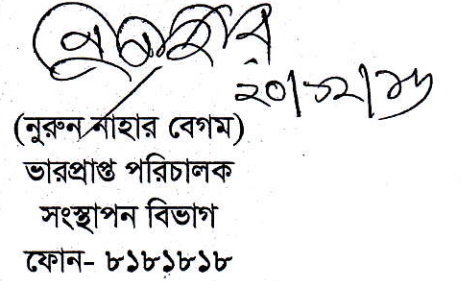 ২০/১২/১৮
(নুরুন নাহার বেগম)
ভারপ্রাপ্ত পরিচালক
সংস্থাপন বিভাগ
ফোন- ৮১৮১৮১৮